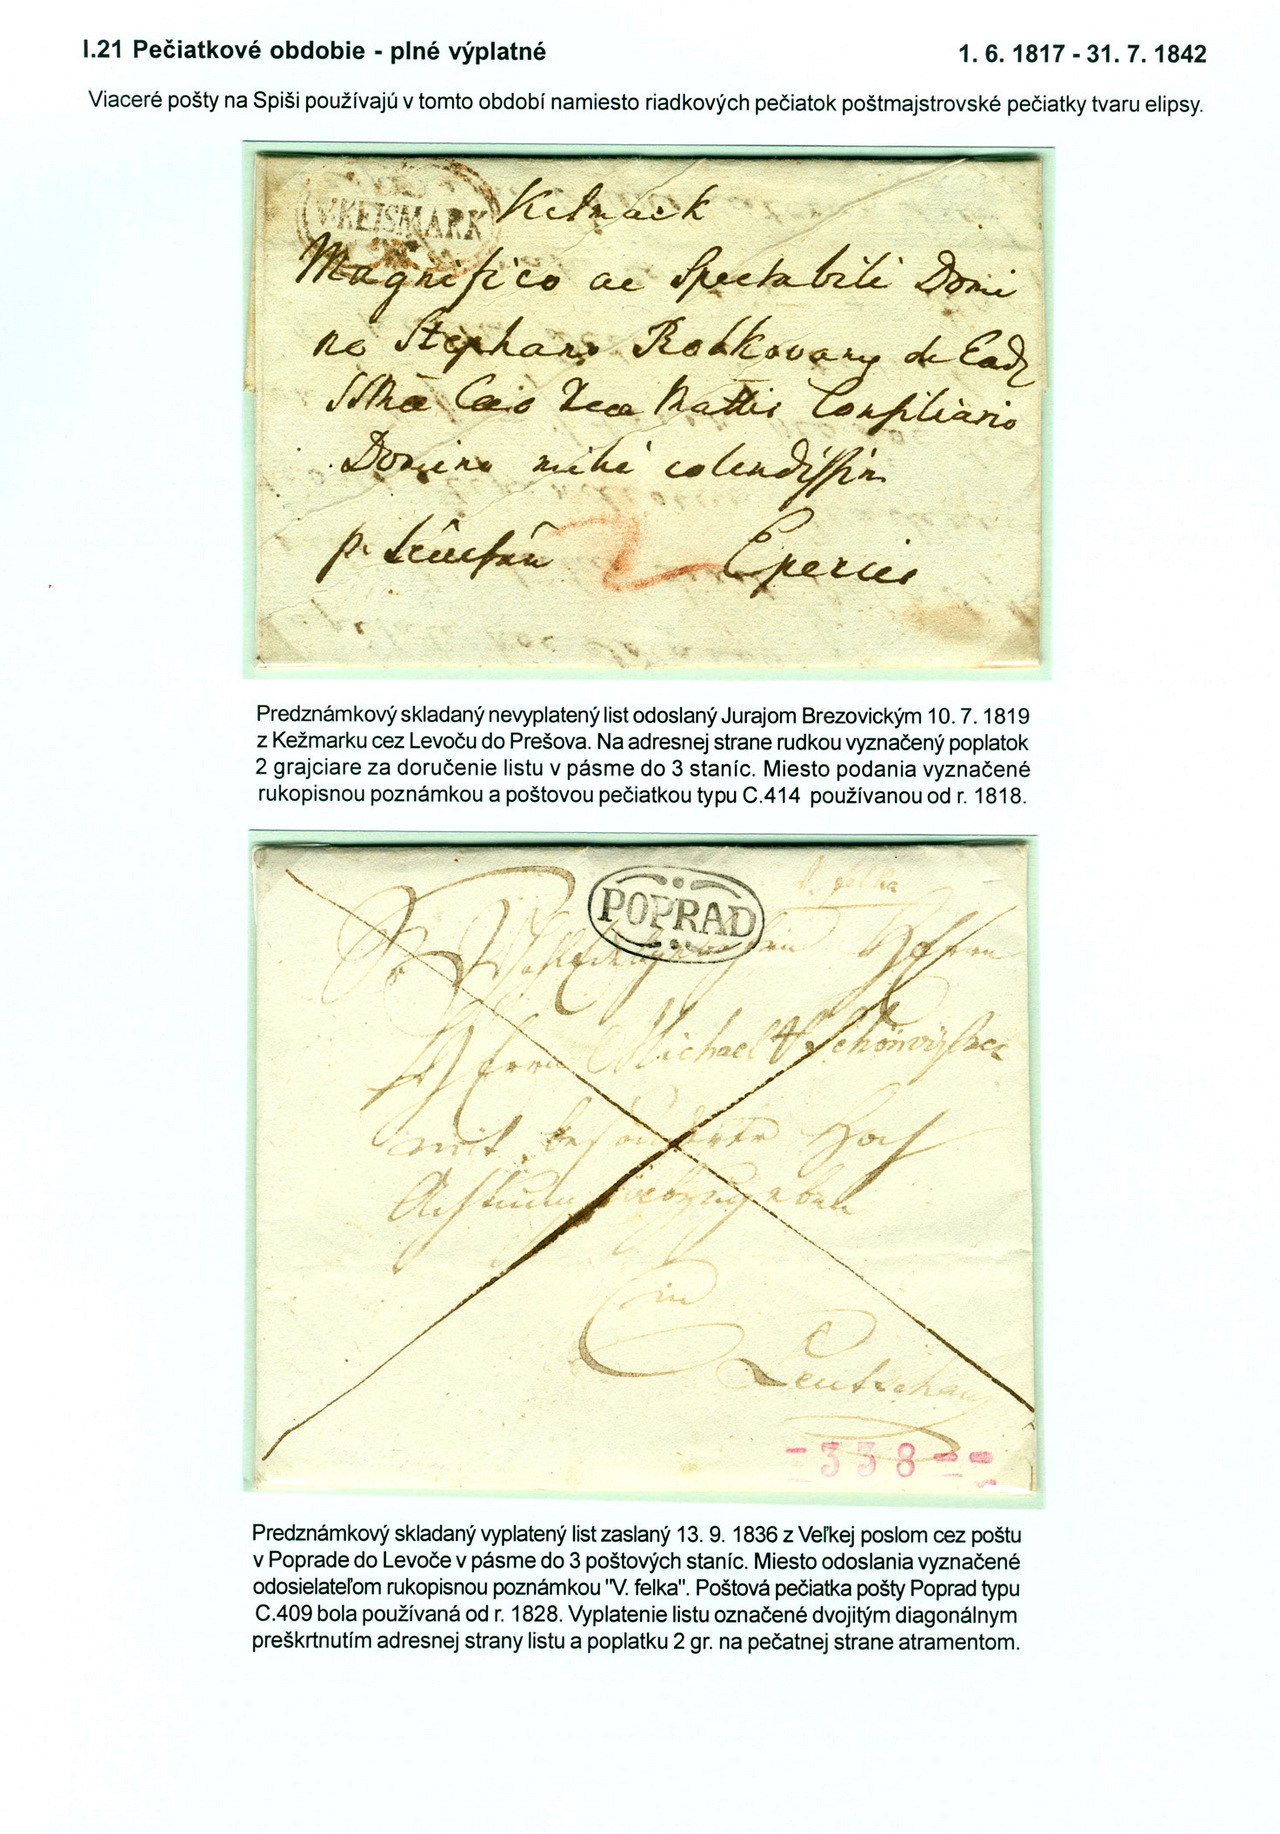 I.21 Pečiatkové obdobie - plné výplatné
1. 6. 1817 - 31. 7. 1842
Viaceré pošty na Spiši používajú v tomto období namiesto riadkových pečiatok poštmajstrovské pečiatky tvaru elipsy.
V.KEISMARK
Kesmark
Magnifico ac Spectabili Domi
no Stephano de
Consiliario
Domino mihi colendissim
2
Eperies
Predznámkový skladaný nevyplatený list odoslaný Jurajom Brezovickým 10. 7. 1819
z Kežmarku cez Levoču do Prešova. Na adresnej strane rudkou vyznačený poplatok
2 grajciare za doručenie listu v pásme do 3 staníc. Miesto podania vyznačené
rukopisnou poznámkou a poštovou pečiatkou typu C.414 používanou od r. 1818.
POPRAD
V. felka
Herrn
Herrn Michael v
mit besonderer Hoch
in
Leutschau
-338--
Predznámkový skladaný vyplatený list zaslaný 13. 9. 1836 z Veľkej poslom cez poštu
v Poprade do Levoče v pásme do 3 poštových staníc. Miesto odoslania vyznačené
odosielateľom rukopisnou poznámkou "V. felka". Poštová pečiatka pošty Poprad typu
C.409 bola používaná od r. 1828. Vyplatenie listu označené dvojitým diagonálnym
preškrtnutím adresnej strany listu a poplatku 2 gr. na pečatnej strane atramentom.